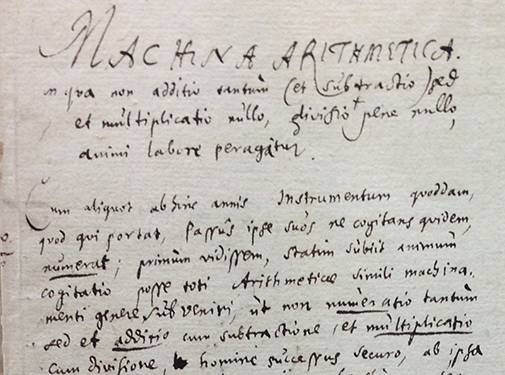 MACHINA ARITHMETICA.
in qua non additio tantum (et subtractio) sed
et multiplicatio nullo, divisio pene nullo,
animi labore peragatur.
Cum aliquot abhinc annis Instrumentum quoddam,
quod qui portat, passus ipse suos ne cogitans quidem,
numerat; primum vidissem, statim subiit animum
cogitatio posse toti Arithmeticae simili machina-
menti genere subveniri, ut non numeratio tantum
sed et additio cum subtractione, et multiplicatio
cum divisione, homine successus securo, ab ipsa